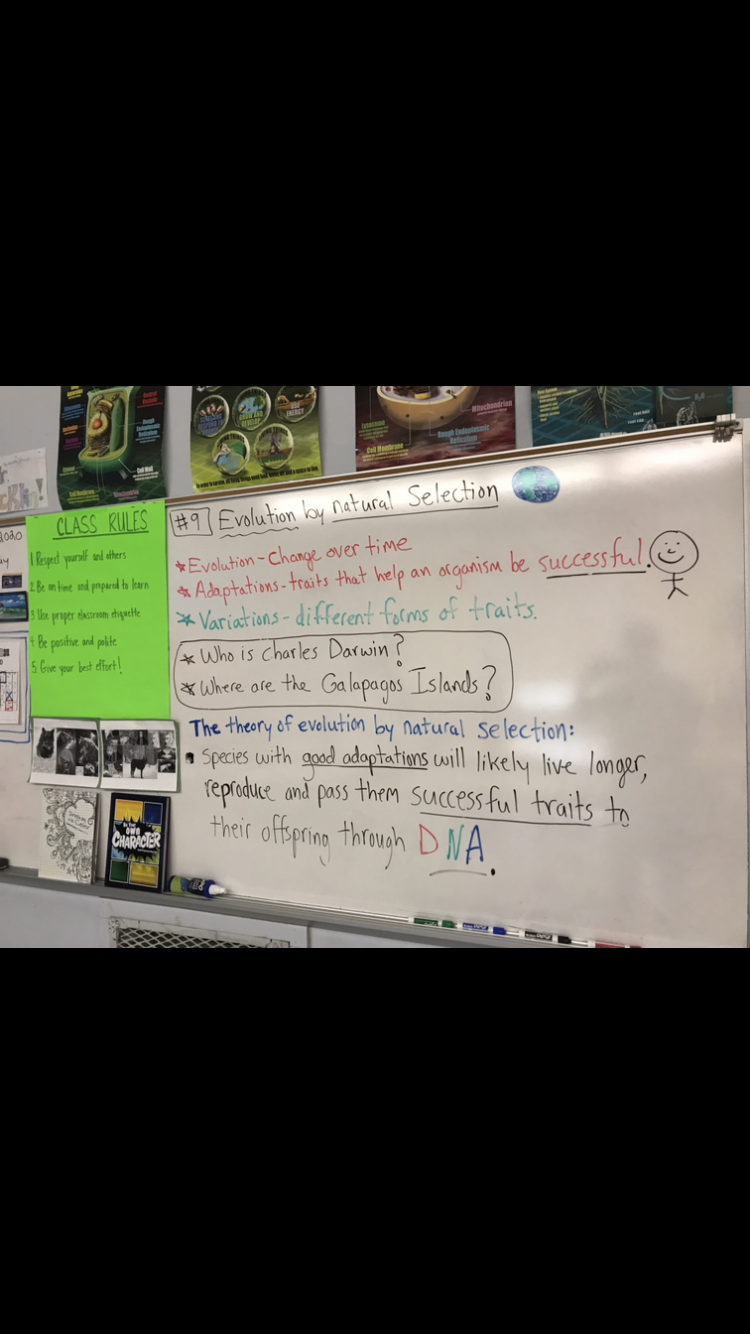 Control
Vacuole
Rough
Endoplasmic
Reticulum
Cell Wall
Cell Membrane
Mitochondrion
RESPOND TO
GROW AND
DEVELOP
USE
ENERGY
Mitochondrion
Rough Endoplasmic
Reticulum
Cell Membrane
root hair
2020
CLASS RULES
1. Respect yourself and others
2. Be on time and prepared to learn
3. Use proper classroom etiquette
4. Be positive and polite
5. Give your best effort!
#9 Evolution by natural Selection
* Evolution - Change over time
* Adaptations - traits that help an organism be successful.
* Variations - different forms of traits.
* Who is Charles Darwin?
* Where are the Galapagos Islands?
The theory of evolution by natural selection:
Species with good adaptations will likely live longer,
reproduce and pass them successful traits to
their offspring through DNA.
BE YOUR
OWN
CHARACTER
EXPO